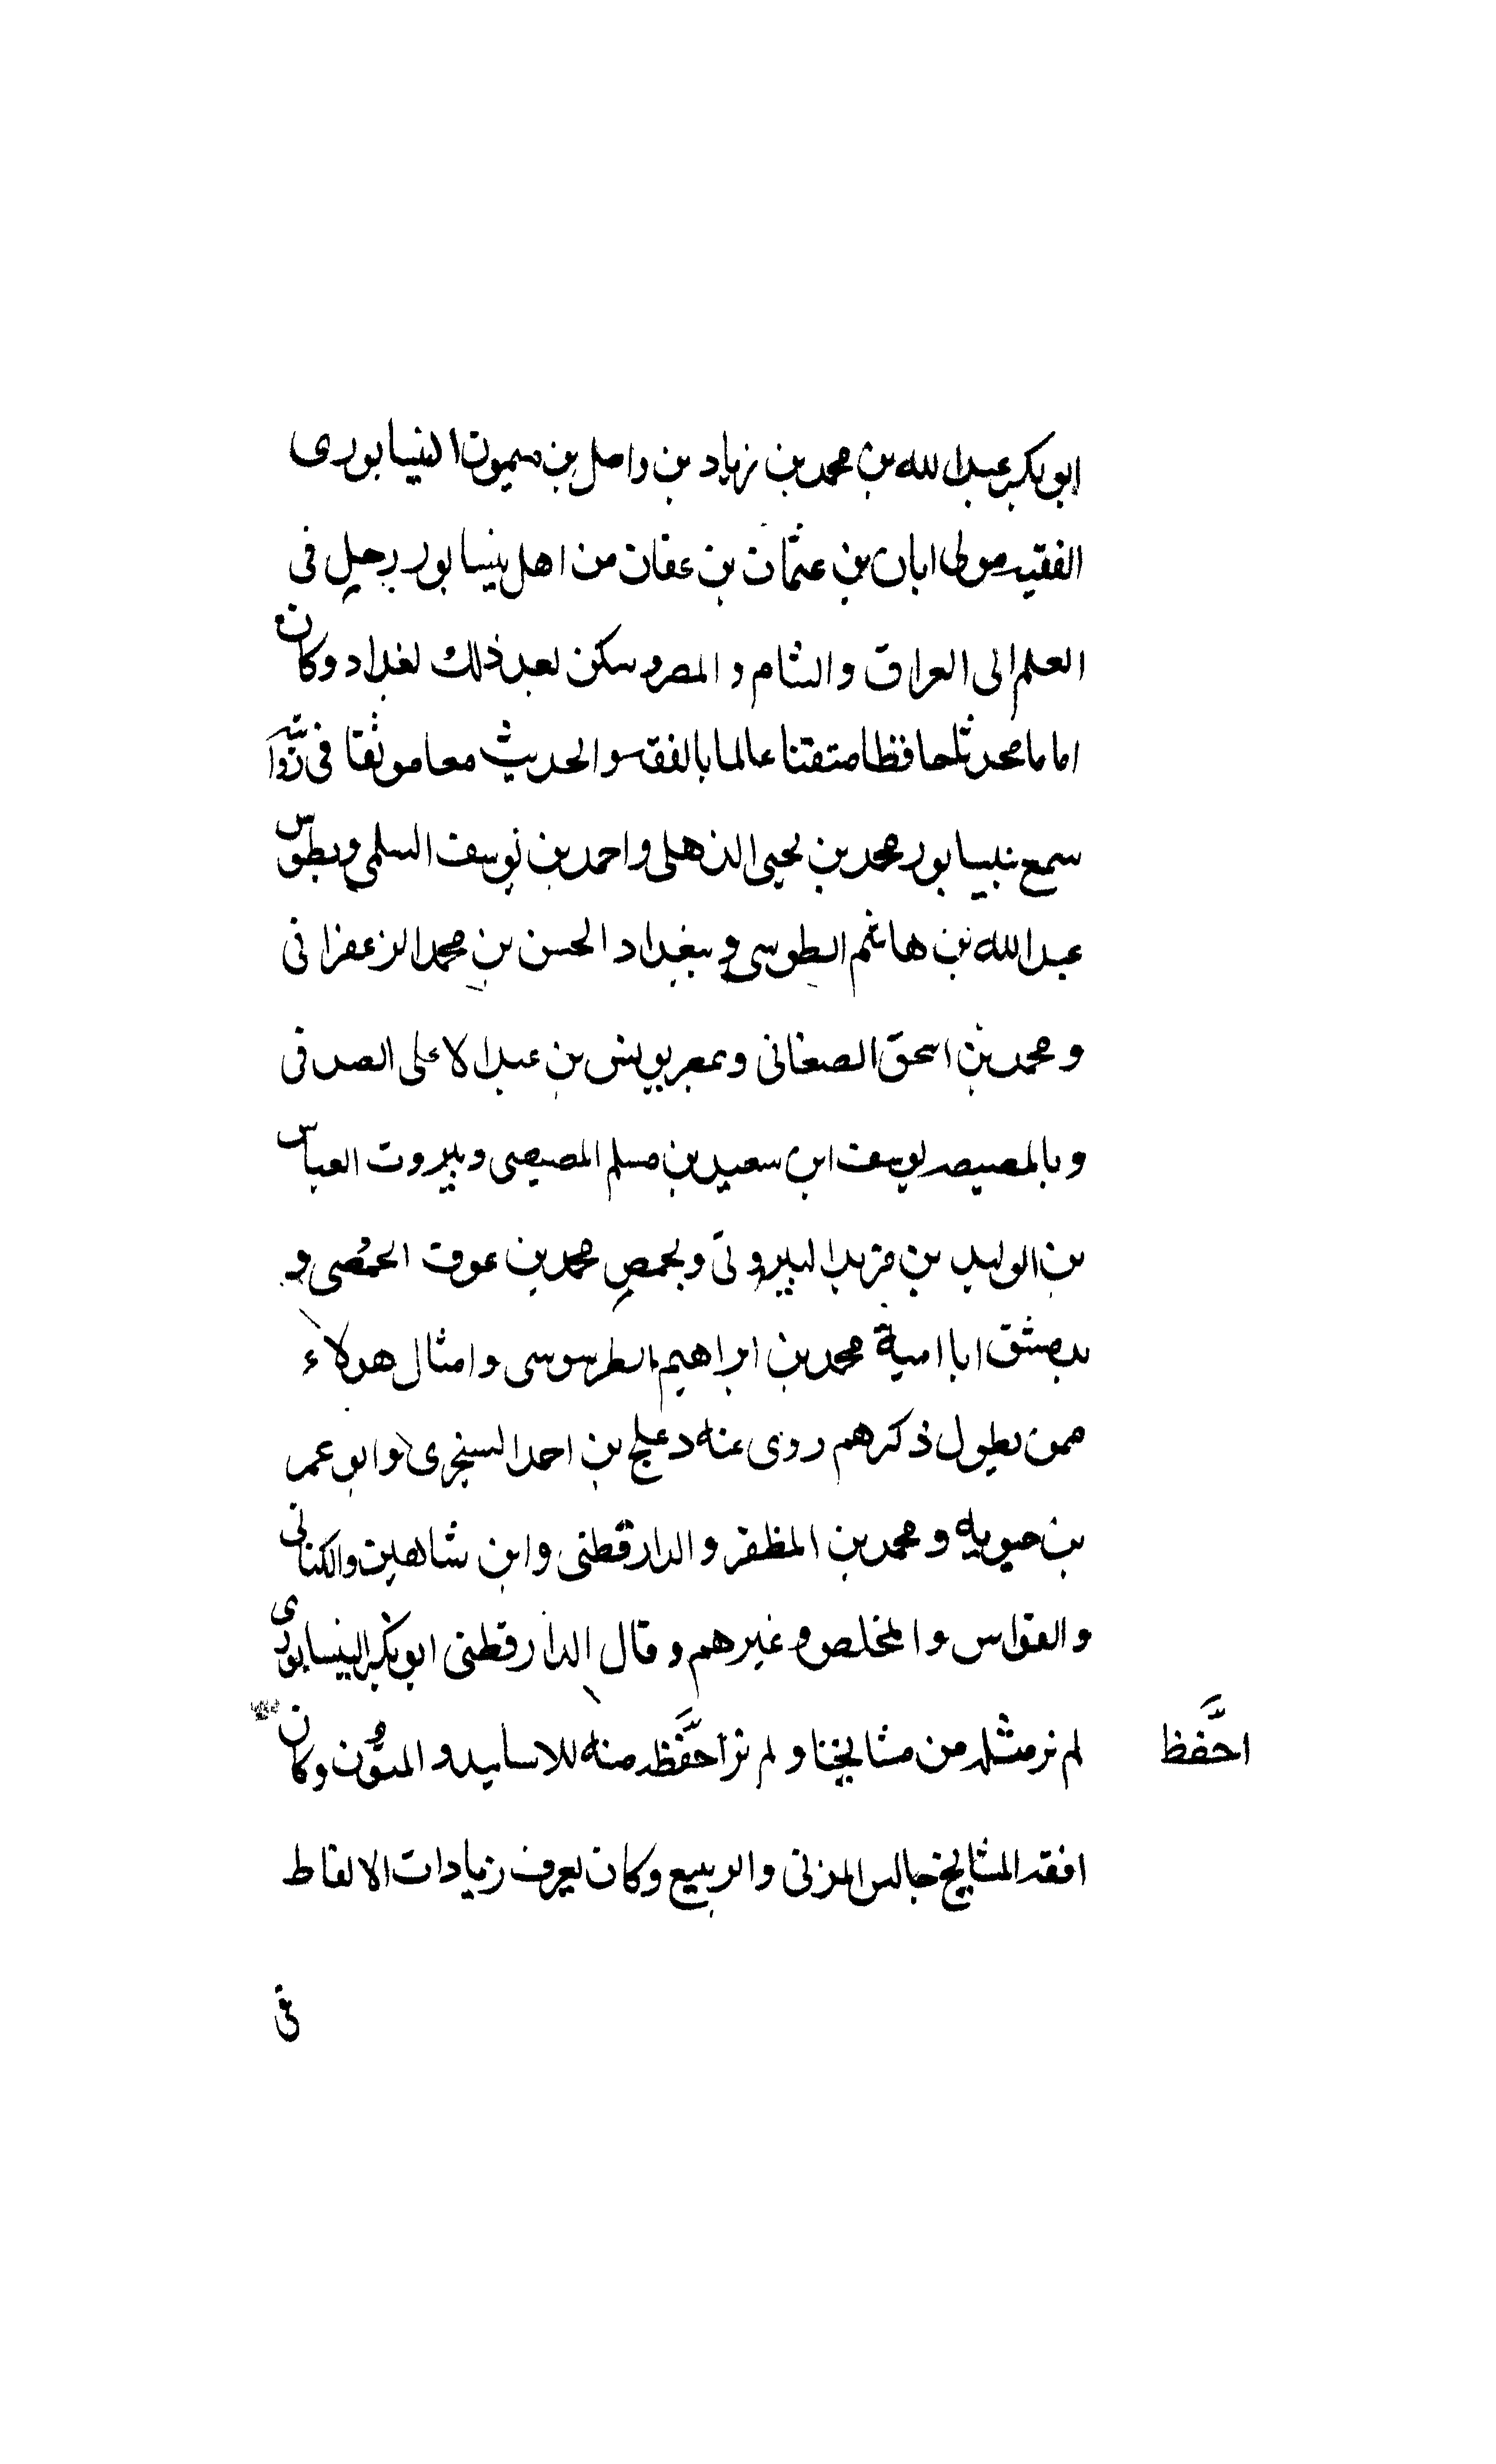 ابو بكر عبد الله بن محمد بن زياد بن واصل بن ميمون النيسابورى
الفقيه مولى ابان بن عثمان بن عفان من اهل نيسابور رحل فى
العلم الى العراق والشام والمصر وسكن بعد ذلك بغداد وكان
اماما محدثا حافظا متقنا عالما بالفقه والحديث معا موثقا فى
سمع بنيسابور محمد بن يحيى الذهلى واحمد بن يوسف السلمى وبطوس
عبد الله بن هاشم الطوسى وببغداد الحسن بن محمد الزعفرانى
ومحمد بن اسحق الصغانى وبمصر يونس بن عبد الاعلى الصدفى
وبالمصيصه يوسف ابن سعيد بن مسلم المصيصى وببيروت العباس
بن الوليد بن مزيد البيروتى وبحمص محمد بن عوف الحمصى و
بدمشق ابا امية محمد بن ابراهيم الطرسوسى وامثال هولاء
ممن يطول ذكرهم روى عنه دعلج بن احمد السنجرى وابو عمر
بن حيويه ومحمد بن المظفر والدارقطنى وابن شاهين والكتانى
والقواس والمخلص وغيرهم وقال الدارقطنى ابو بكر النيسابورى
لم نر مثله من مشايخنا ولم نر احفظ منه للاسانيد والمتون وكان
احفظ
افقه المشايخ جالس المزنى والربيع وكان يعرف زيادات الالفاظ
فى